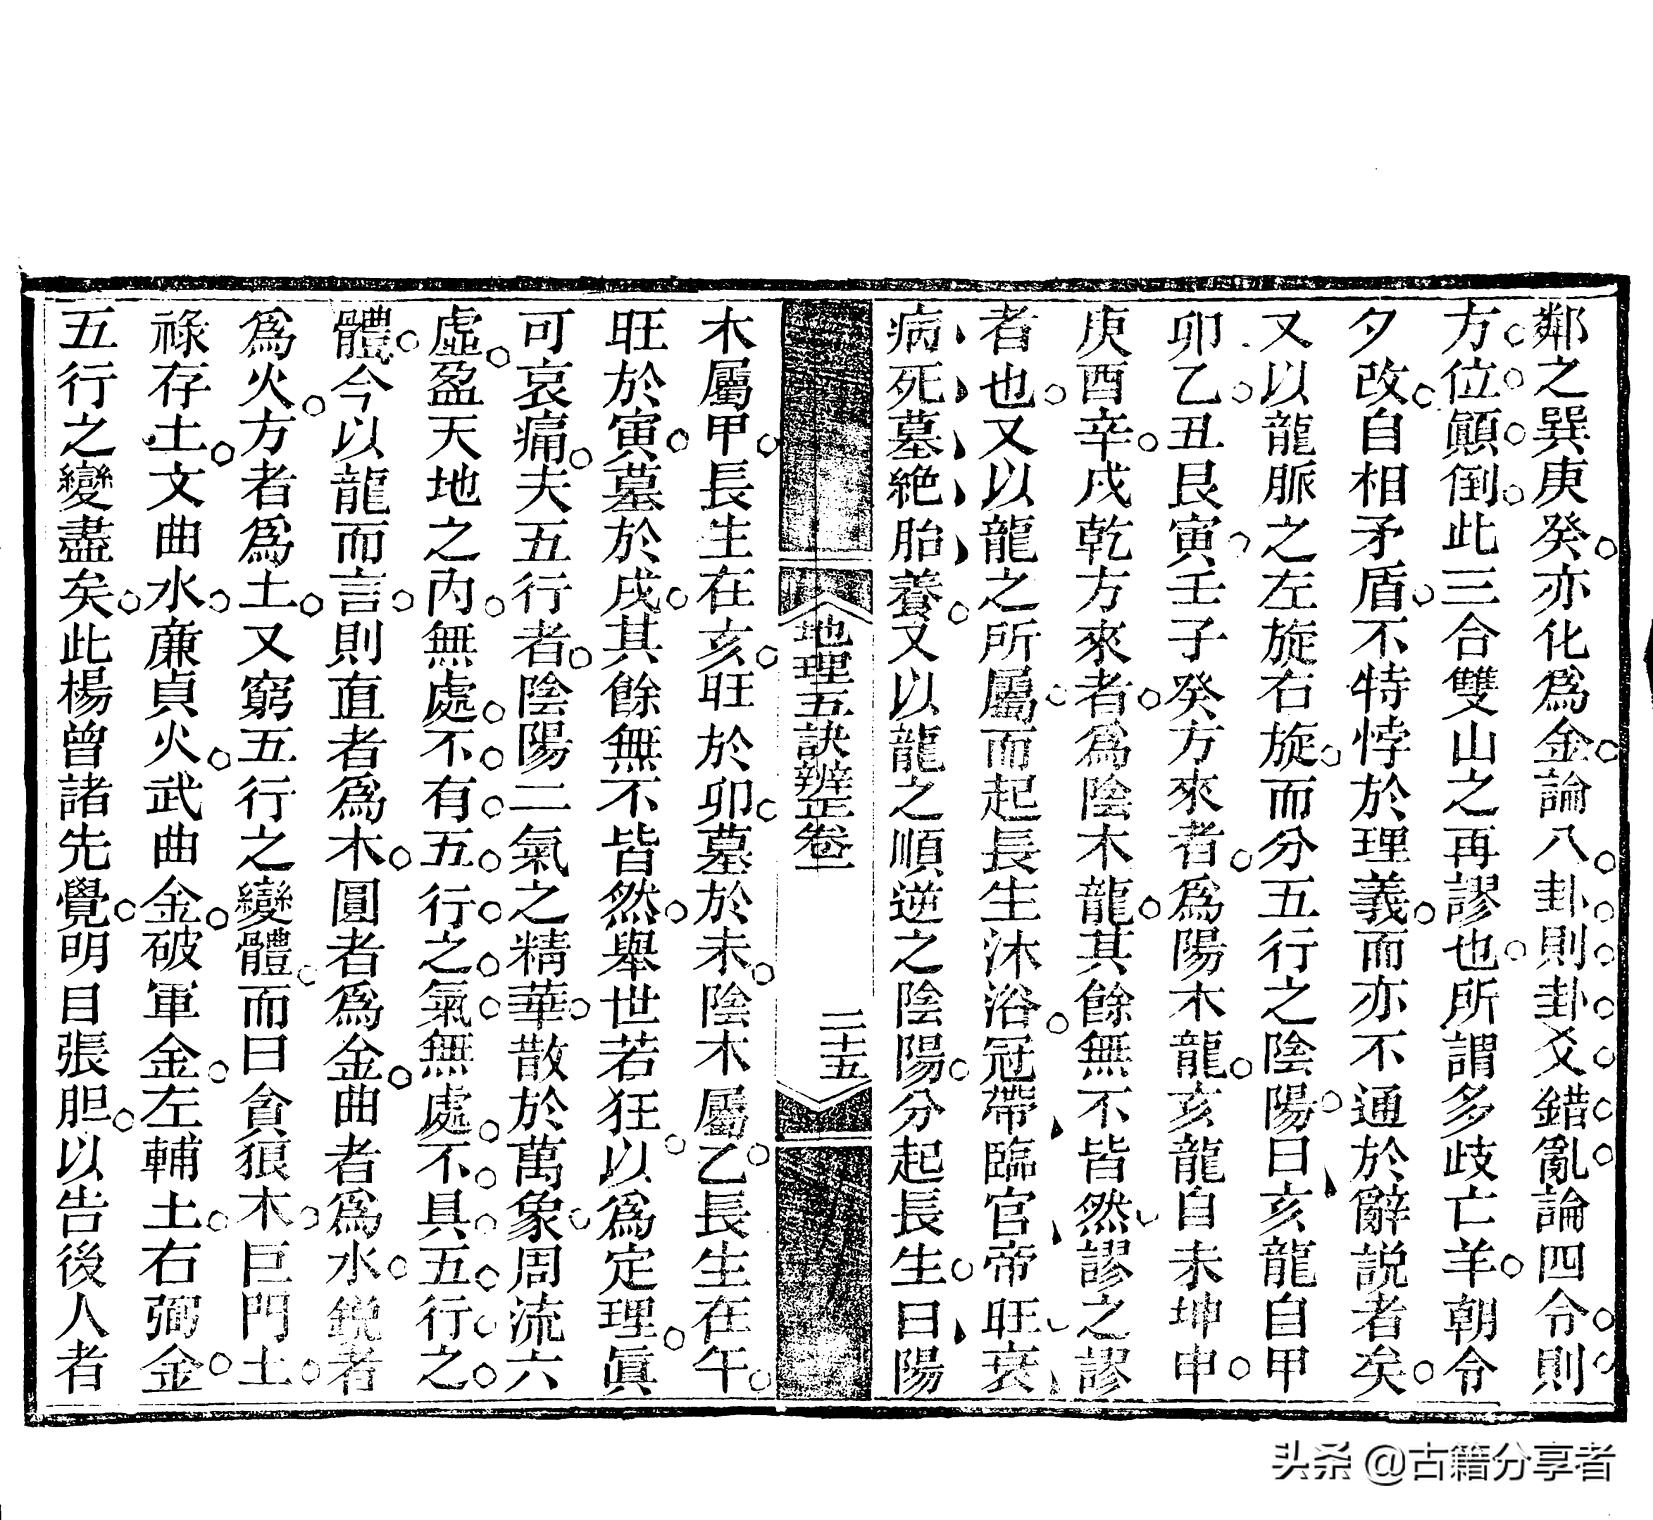 鄰之巽庚癸亦化爲金論八卦則卦爻錯亂論四令則
方位顚倒此三合雙山之再謬也所謂多歧亡羊朝令
夕改自相矛盾不特悖於理義而亦不通於辭説者矣
又以龍脈之左旋右旋而分五行之陰陽曰亥龍自甲
卯乙丑艮寅壬子癸方來者爲陽木龍亥龍自未坤申
庚酉辛戌乾方來者爲陰木龍其餘無不皆然謬之謬
者也又以龍之所屬而起長生沐浴冠帶臨官帝旺衰
病死墓絶胎養又以龍之順逆之陰陽分起長生曰陽
地理五訣辨正卷一
二十五
木屬甲長生在亥旺於卯墓於未陰木屬乙長生在午
旺於寅墓於戌其餘無不皆然舉世若狂以爲定理眞
可哀痛夫五行者陰陽二氣之精華散於萬象周流六
虛盈天地之内無處不有五行之氣無處不具五行之
體今以龍而言則直者爲木圓者爲金曲者爲水鋭者
爲火方者爲土又窮五行之變體而曰貪狼木巨門土
祿存土文曲水廉貞火武曲金破軍金左輔土右弼金
五行之變盡矣此楊曾諸先覺明目張胆以告後人者
头条 @古籍分享者